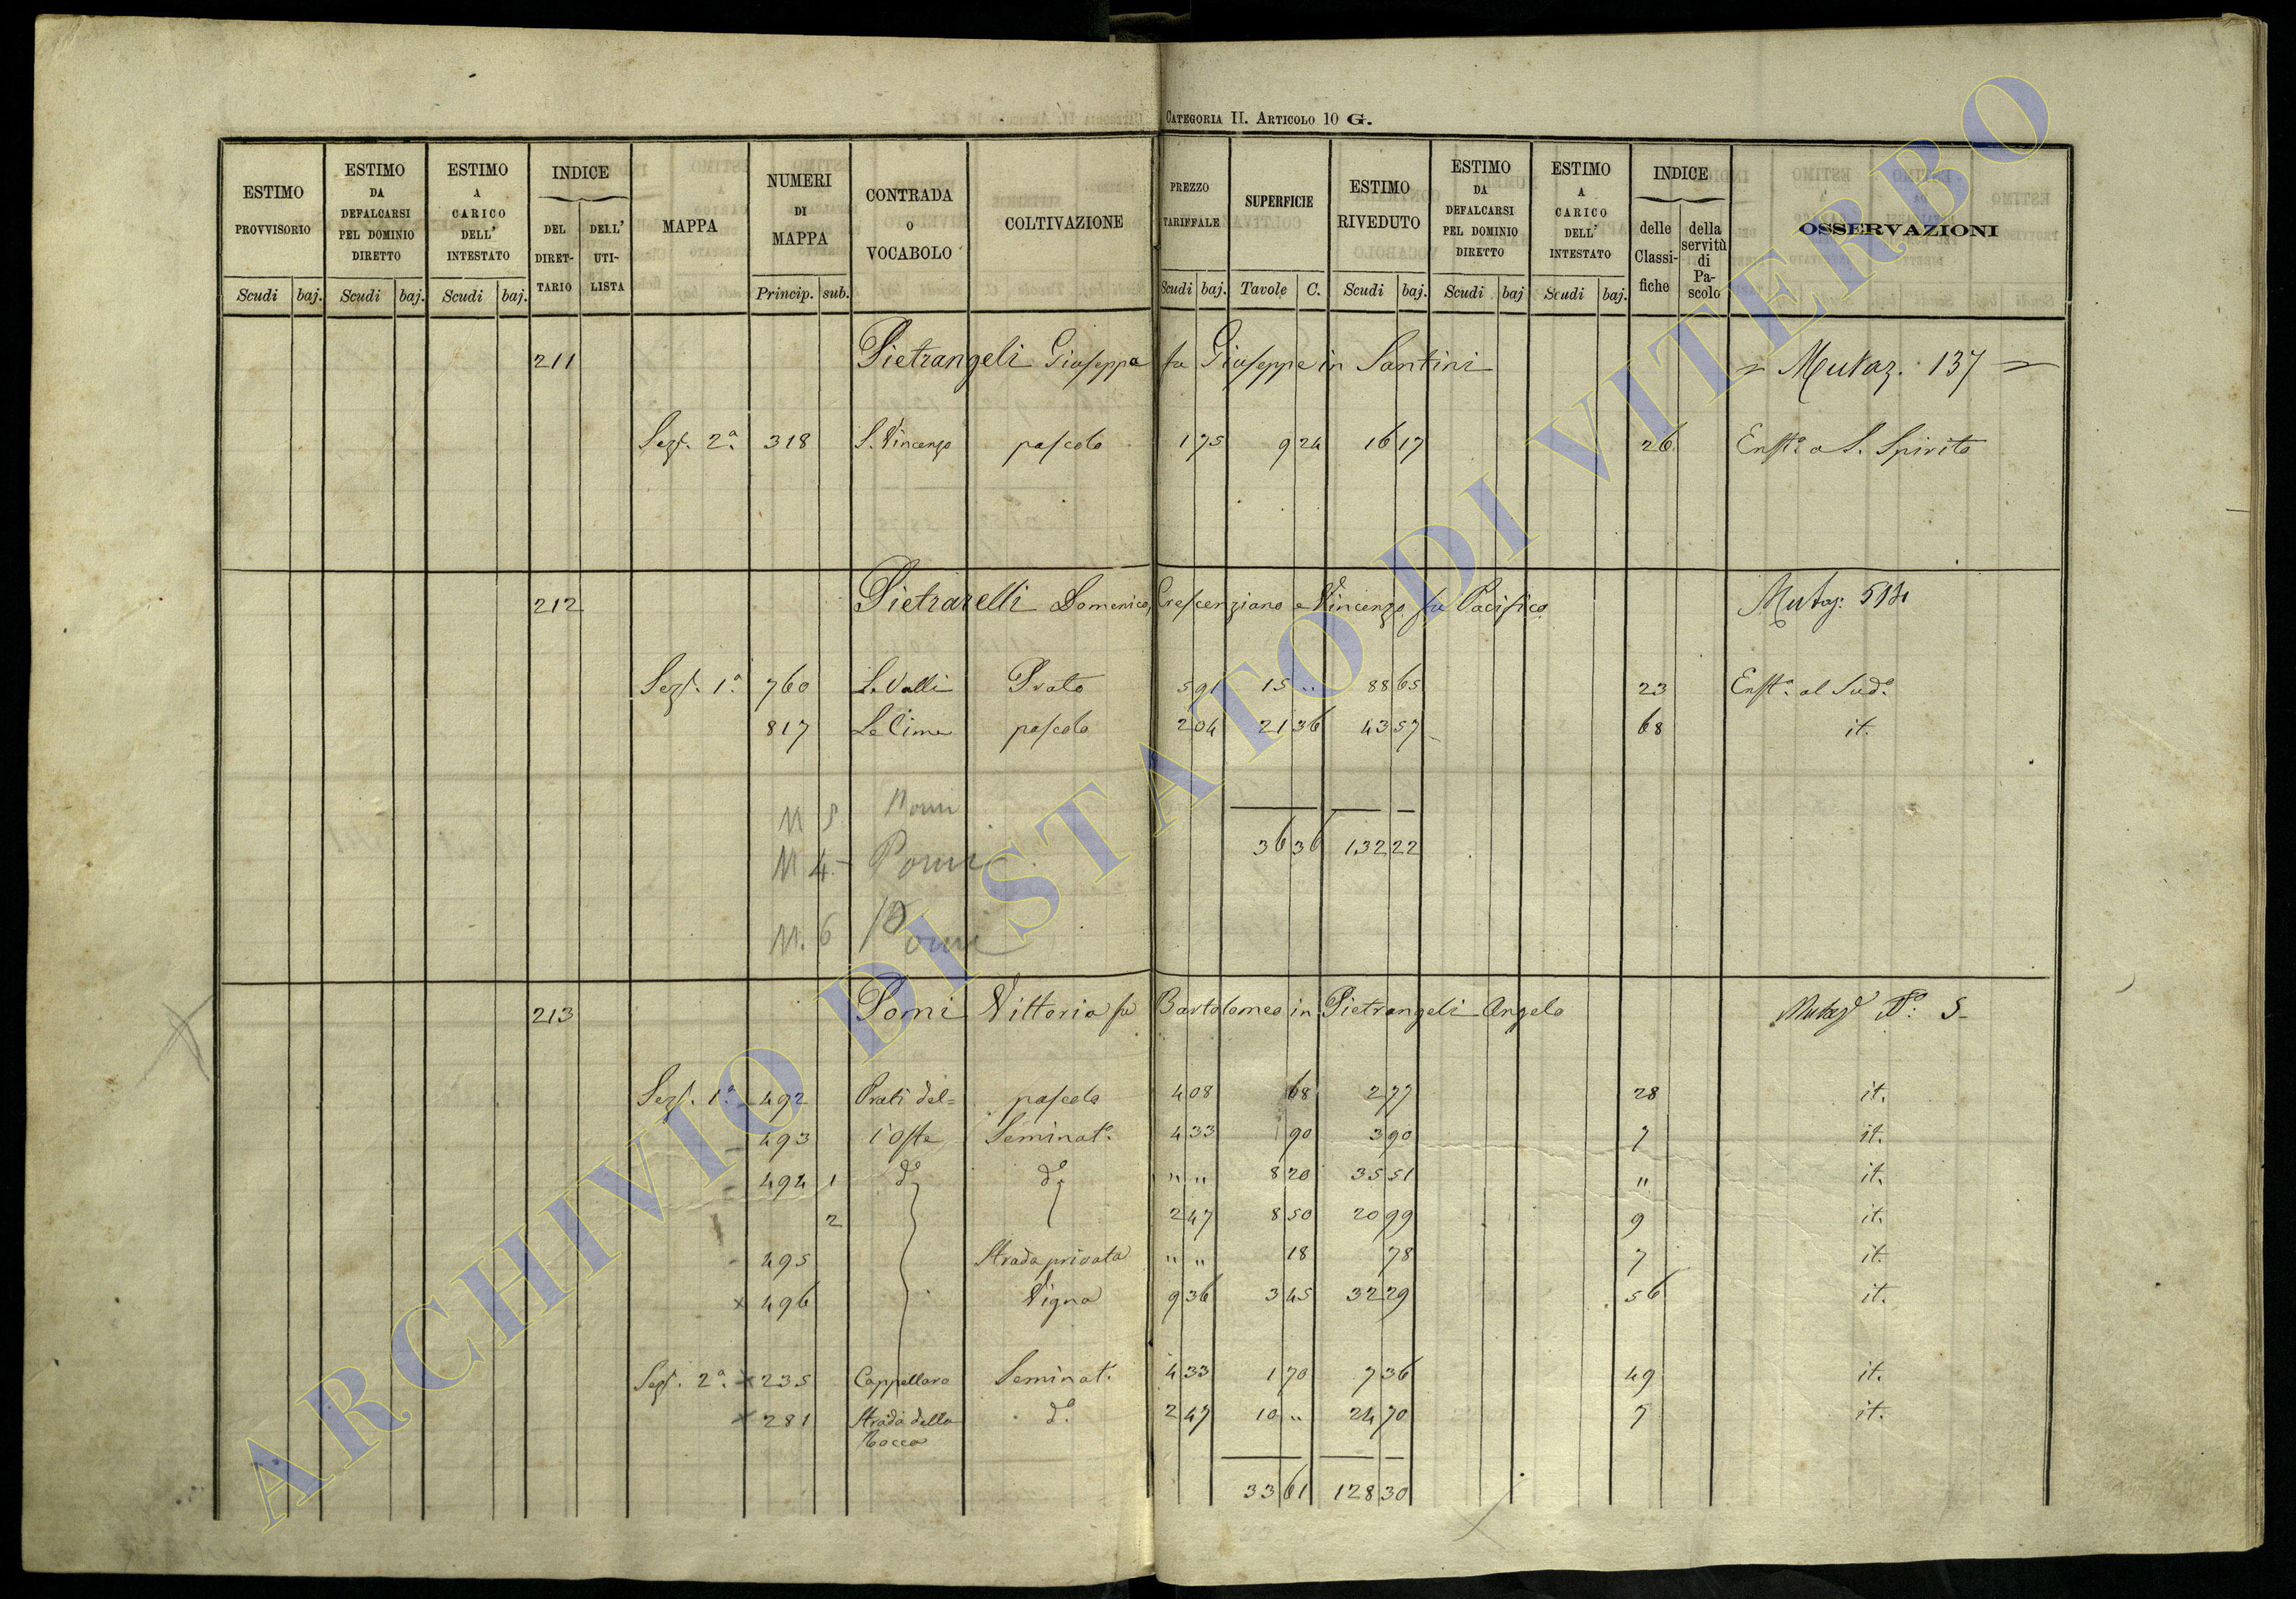 CATEGORIA II. ARTICOLO 10 G.
ESTIMO PROVVISORIO Scudi baj. ESTIMO DA DEFALCARSI PEL DOMINIO DIRETTO Scudi baj. ESTIMO A CARICO DELL' INTESTATO Scudi baj. INDICE DEL DIRET-TARIO DELL' UTI-LISTA MAPPA NUMERI DI MAPPA Princip. sub. CONTRADA O VOCABOLO COLTIVAZIONE PREZZO TARIFFALE Scudi baj. SUPERFICIE Tavole C. ESTIMO RIVEDUTO Scudi baj. ESTIMO DA DEFALCARSI PEL DOMINIO DIRETTO Scudi baj ESTIMO A CARICO DELL' INTESTATO Scudi baj. INDICE delle Classi-fiche della servitù di Pa-scolo OSSERVAZIONI
211 Pietrangeli Giuseppa fu Giuseppe in Santini = Mutaz. 137 =
Sez. 2ª 318 S. Vincenzo pascolo 1 75 9 24 16 17 26 Enft. a S. Spirito
212 Pietrarelli Domenico, Crescenziano e Vincenzo fu Pacifico Mutaz:
Sez. 1ª 760 Le Valli Prato 5 91 15 " 88 65 23 Enft. al Sud.º
817 Le Cime pascolo 2 04 21 36 43 57 68 it.
N 5 Pomi
36 36 132 22
N 4 - Pomi
N. 6 Pomi
213 Pomi Vittoria fu Bartolomeo in Pietrangeli Angelo Mutaz Nº: 5
Sez. 1ª 492 Prati del= pascolo 4 08 68 2 77 28 it.
493 l'Oste Seminat.º 4 33 90 3 90 7 it.
494 1 dº dº " " 8 20 35 51 " it.
2 2 47 8 50 20 99 9 it.
495 Strada privata " " 18 78 7 it.
x 496 Vigna 9 36 3 45 32 29 56 it.
Sez. 2ª x 235 Cappellaro Seminat. 4 33 1 70 7 36 49 it.
x 281 Strada della dº 2 47 10 " 24 70 7 it.
Rocca
33 61 128 30
ARCHIVIO DI STATO DI VITERBO